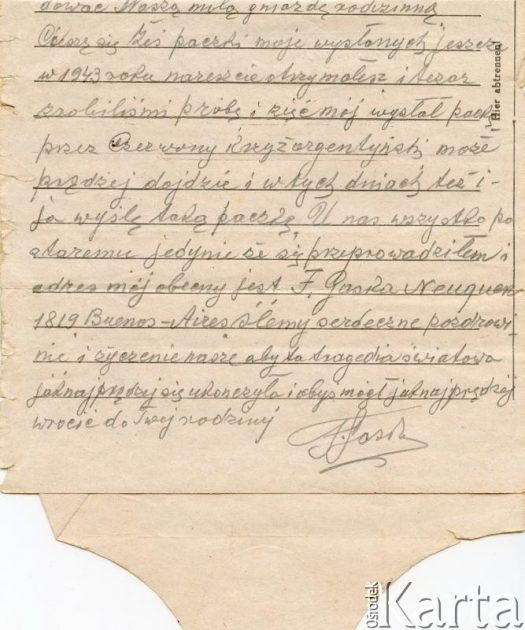 dować Naszą miłą gniazdę rodzinną
Cieszę się żeś paczki moje wysłanych jeszcze
w 1943 roku nareszcie otrzymałeś i teraz
zrobiliśmi próbę i zięć mój wysłał paczkę
przez Czerwony Krzyż argentyński może
prędzej dojdzie i w tych dniach też i
ja wyślę taką paczkę U nas wszystko po
staremu jedynie że się przeprowadziłem i
adres mój obecny jest F. Gaska Neuquen
1819 Buenos-Aires Ślemy serdeczne pozdrowi
nie i życzenie nasze aby ta tragedia światowa
jaknajprędzej się ukonczyła i obyś mógł jaknajprędzej
wrócić do Twej rodziny
Hier abtrennen!
ośrodek
Karta